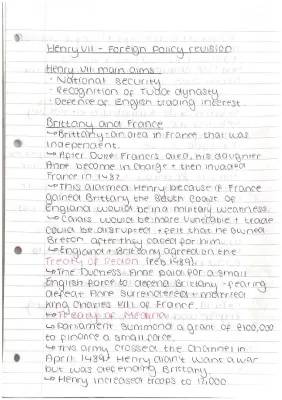 Henry VII - Foreign Policy revision
Henry VII main aims
· National security
· Recognition of Tudor dynasty
· Defence of English trading interest.
Brittany and France
↳ Brittany - an area in France that was
independent.
↳ After Duke Francis died, his daughter
Anne become in charge + then invaded
France in 1487
↳ This alarmed Henry because if France
gained Brittany the South Coast of
England would be in a military weakness.
↳ Calais would be more vunerable + trade
could be disrupted + felt that he owned
Breton after they cared for him.
↳ England + Brittany agreed on the
Treaty of Redon (Feb 1489).
↳ The Duchess Anne paid for a small
English force to defend Brittany - fearing
defeat Anne surrendered + married
King Charles VIII of France.
↳ Treaty of Medina
↳ Parliament a grant of £100,000
to finance a small force.
↳ This army crossed the Channel in
April 1489. Henry didn't want a war
but was defending Brittany.
↳ Henry increased troops to